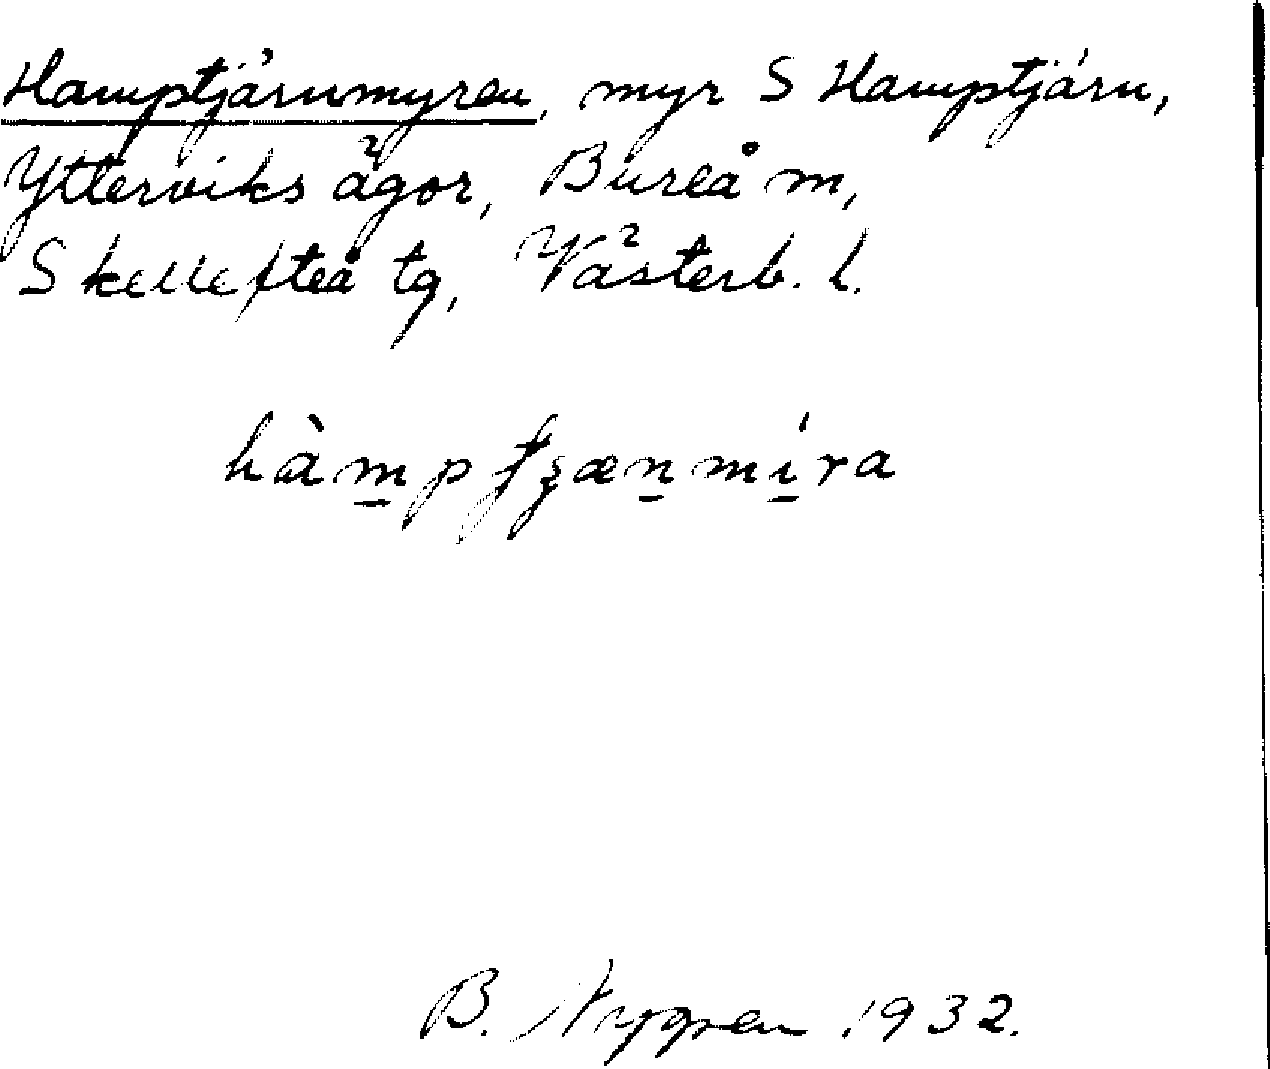 Hamptjärnmyren, myr S Hamptjärn,
Ytterviks ägor, Bureå m,
Skellefteå tg, Västerb. l.
hàm̲pʄʒæn̲mí̲ra
B. Nygren 1932.